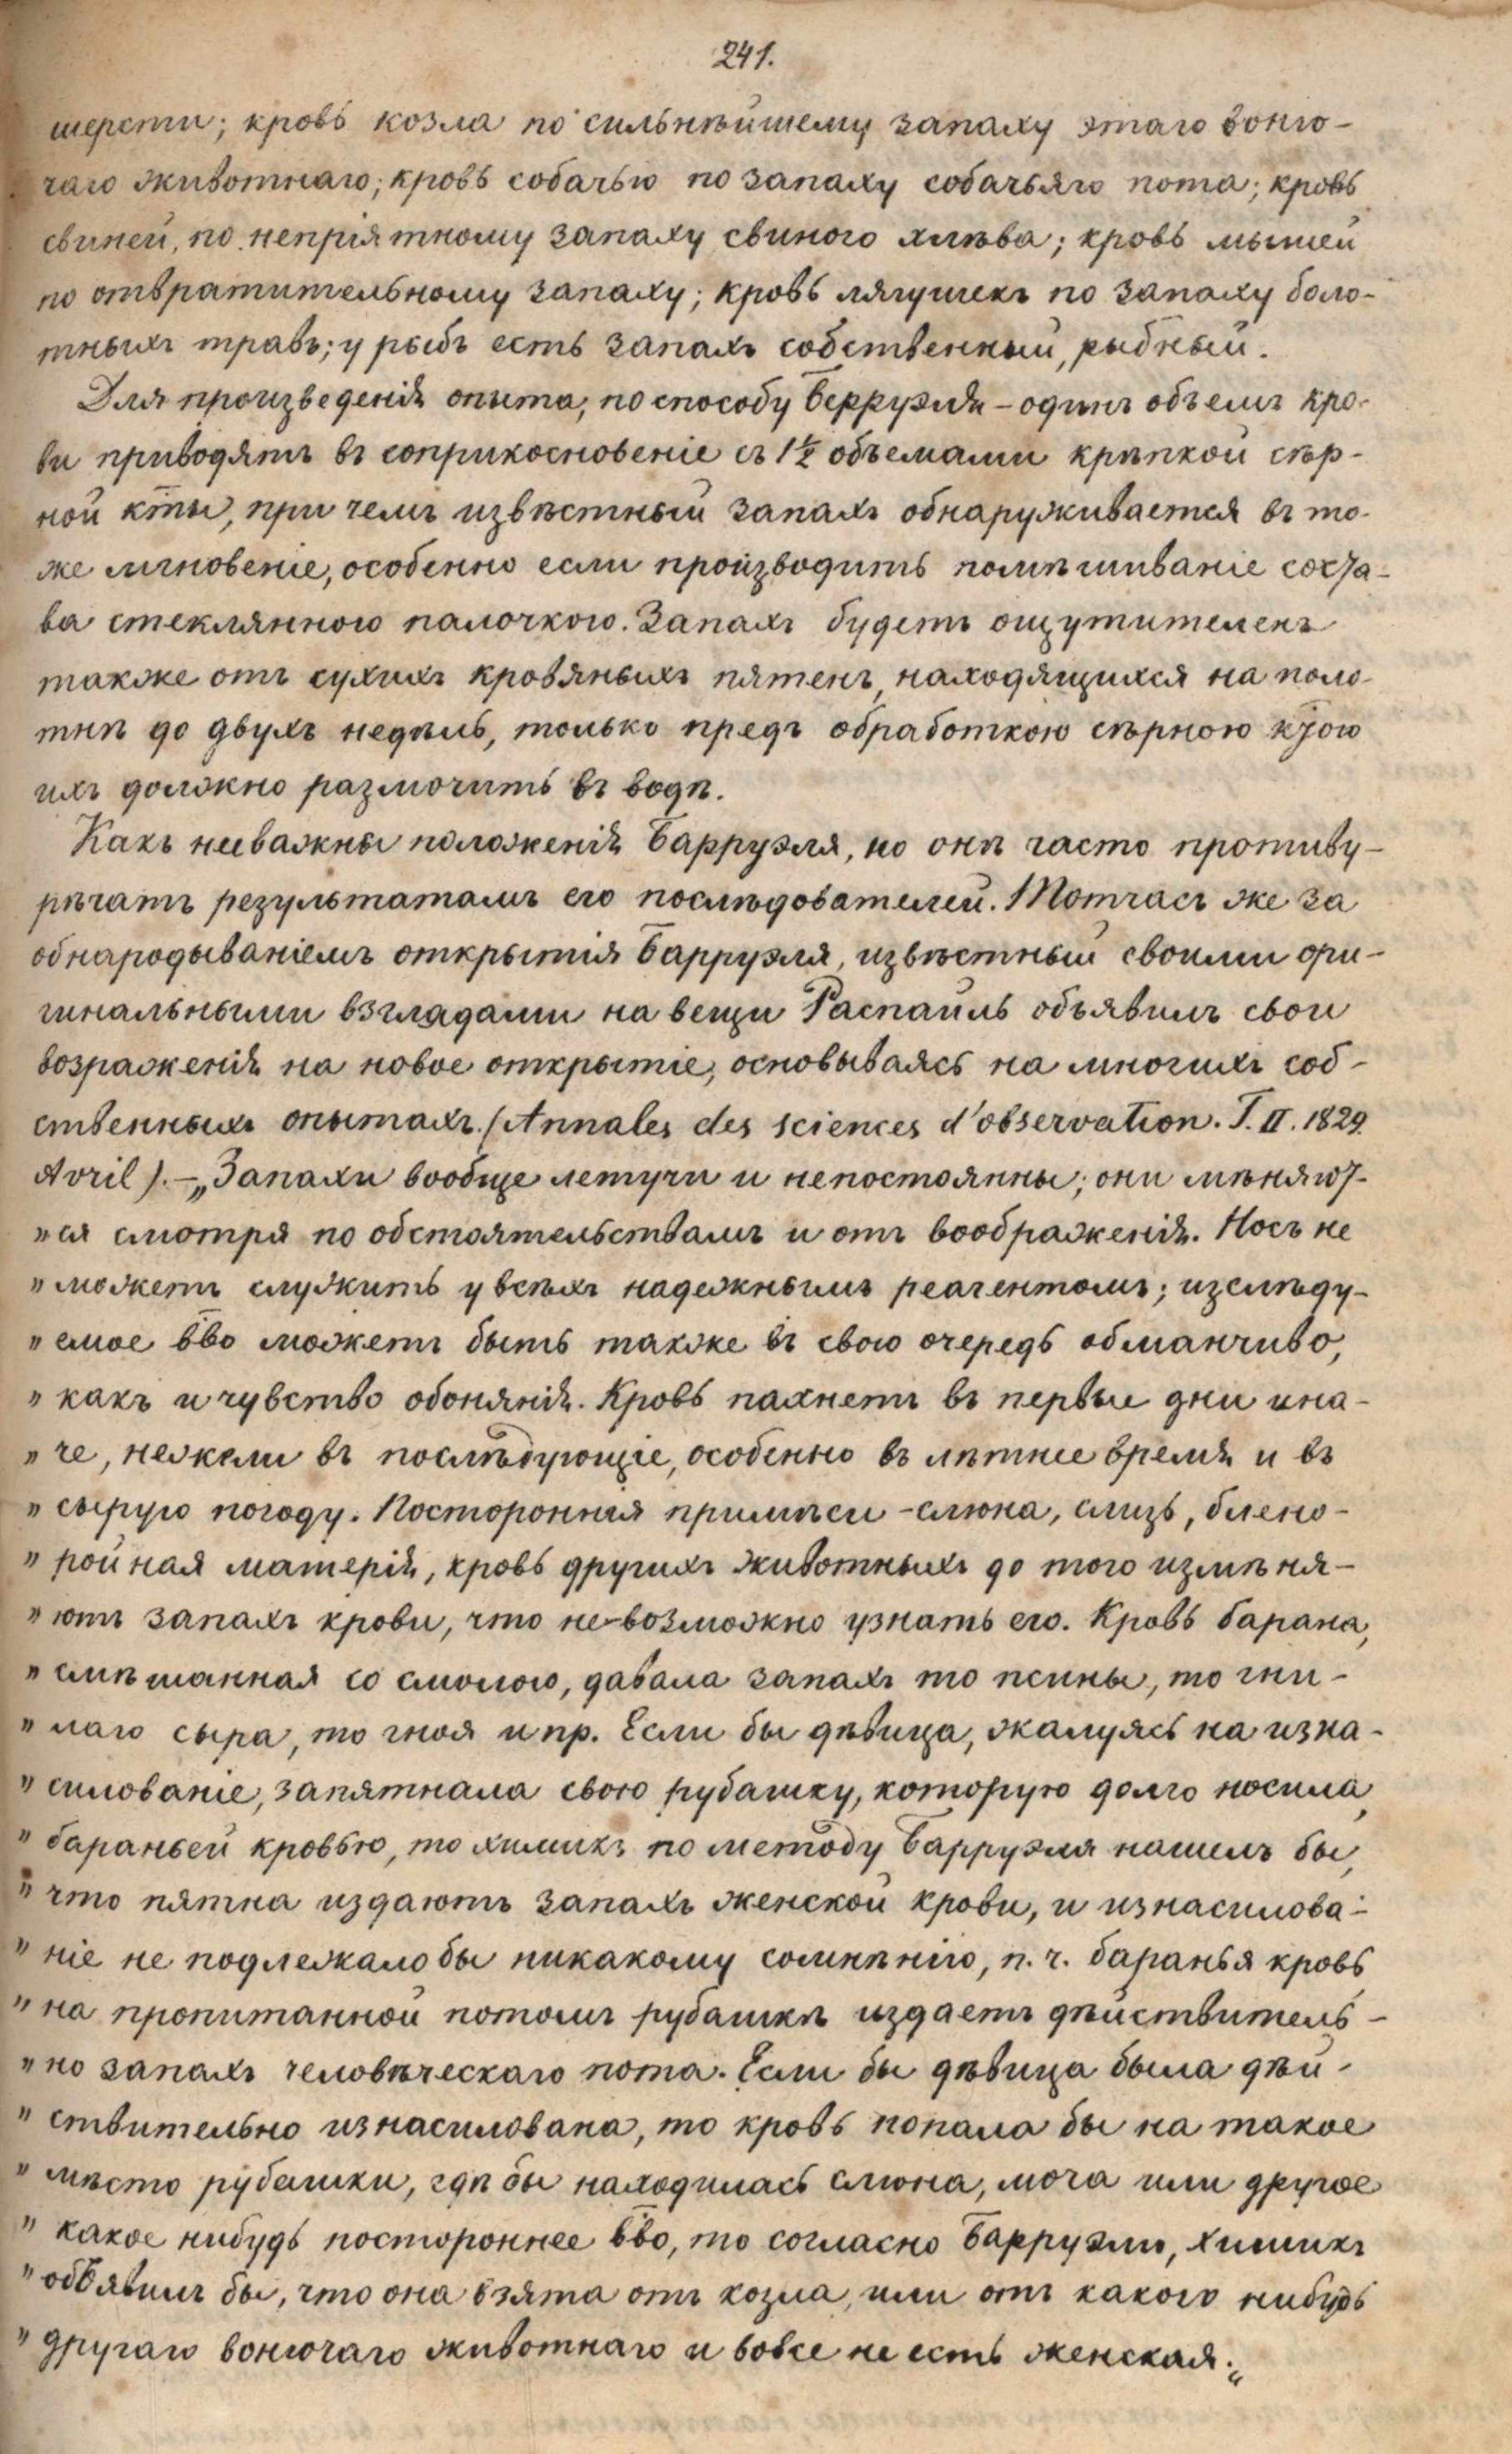 241.
шерсти; кровь козла по сильнѣйшему запаху этаго воню-
чаго животнаго; кровь собачью по запаху собачьяго пота; кровь
свиней, по непріятному запаху свиного хлѣва; кровь мышей
по отвратительному запаху; кровь лягушекъ по запаху боло-
тныхъ травъ; у рыбъ есть запахъ собственный, рыбный.
Для произведенія опыта, по способу Берруэля – одинъ объемъ кро-
ви приводятъ въ соприкосновеніе съ 1½ объемами крѣпкой сѣр-
ной кты, при чемъ извѣстный запахъ обнаруживается въ то-
же мгновеніе, особенно если производить помѣшиваніе соста-
ва стеклянною палочкою. Запахъ будетъ ощутителенъ
также отъ сухихъ кровяныхъ пятенъ, находящихся на поло-
тнѣ до двухъ недѣль, только предъ обработкою сѣрною ктою
ихъ должно размочить въ водѣ.
Какъ нееважны положенія Барруэля, но онѣ часто противу-
рѣчатъ результатамъ его послѣдователей. Тотчасъ же за
обнародываніемъ открытія Барруэля, извѣстный своими ори-
гинальными взглядами на вещи Распаиль объявилъ свои
возраженія на новое открытіе, основываясь на многихъ соб-
ственныхъ опытахъ. (Annales des sciences d'observation. T. II. 1829.
Avril). – „Запахи вообще летучи и непостоянны; они мѣняют-
„ся смотря по обстоятельствамъ и отъ воображенія. Носъ не
„можетъ служить у всѣхъ надежнымъ реагентомъ; изслѣду-
„емое вво можетъ быть также въ свою очередь обманчиво,
„какъ и чувство обонянія. Кровь пахнетъ въ первые дни ина-
„че, нежели въ послѣдующіе, особенно въ лѣтнее время и въ
„сырую погоду. Посторонняя примѣси – слюна, слизь, блено-
„ройная матерія, кровь другихъ животныхъ до того измѣня-
„ютъ запахъ крови, что не-возможно узнать его. Кровь барана,
„смѣшанная со смолою, давала запахъ то псины, то гни-
„лаго сыра, то гноя и пр. Если бы дѣвица, жалуясь на изна-
„силованіе, запятнала свою рубашку, которую долго носила,
„бараньей кровью, то химикъ по методу Барруэля нашелъ бы,
„что пятна издаютъ запахъ женской крови, и изнасилова-
„ніе не подлежало бы никакому сомнѣнію, п. ч. баранья кровь
„на пропитанной потомъ рубашкѣ издаетъ дѣйствитель-
„но запахъ человѣческаго пота. Если бы дѣвица была дѣй-
„ствительно изнасилована, то кровь попала бы на такое
„мѣсто рубашки, гдѣ бы находилась слюна, моча или другое
„какое нибудь постороннее вво, то согласно Барруэлю, химикъ
„объявилъ бы, что она взята отъ козла, или отъ какого нибудь
„другаго вонючаго животнаго и вовсе не есть женская.„